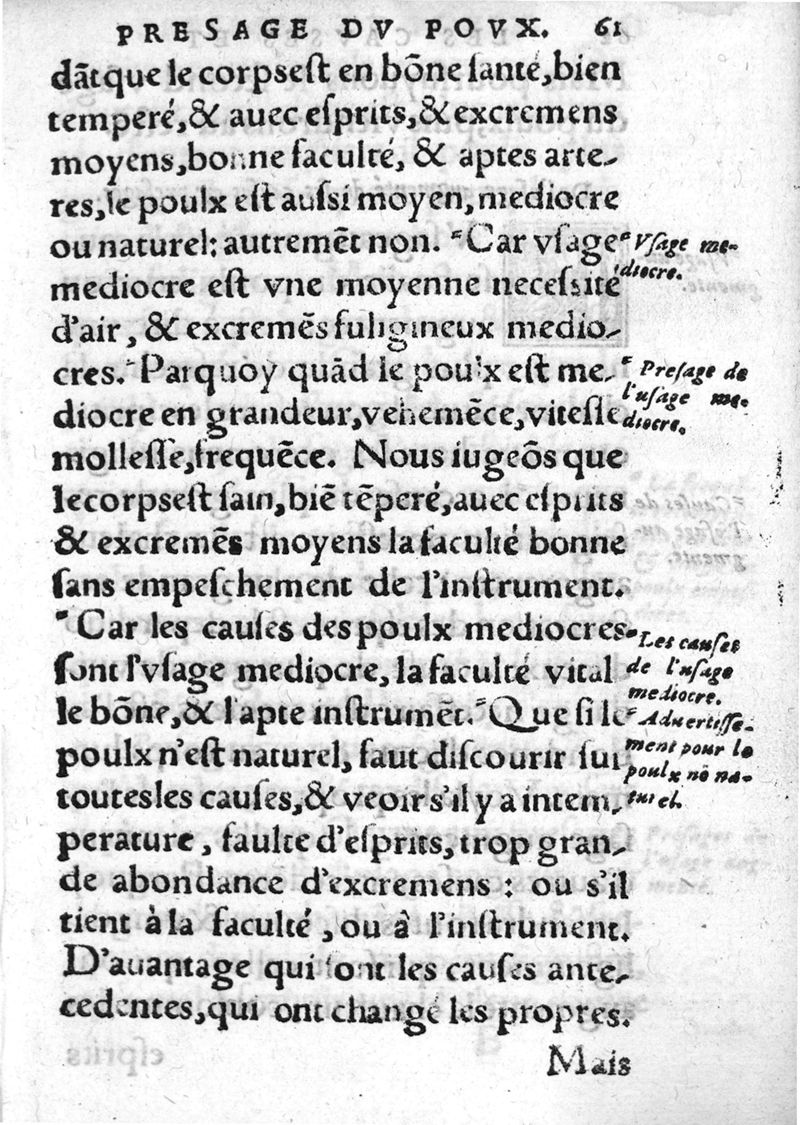 PRESAGE DV POVX. 61
dãt que le corps est en bõne ſanté, bien
temperé, & auec eſprits, & excremens
moyens, bonne faculté, & aptes arte-
res, le poulx eſt auſsi moyen, mediocre
ou naturel: autremẽt non. "Car vſage
mediocre eſt vne moyenne neceſsité
d'air, & excremẽs fuligineux medio-
cres. "Parquoy quãd le poulx eſt me-
diocre en grandeur, vehemẽce, viteſſe
molleſſe, frequẽce. Nous iugeõs que
le corps eſt ſain, biẽ tẽperé, auec eſprits
& excremẽs moyens la faculté bonne
ſans empeſchement de l'inſtrument.
"Car les cauſes des poulx mediocres
ſont l'vſage mediocre, la faculté vital
le bõne, & l'apte inſtrumẽt. "Que ſi le
poulx n'eſt naturel, faut diſcourir ſur
toutes les cauſes, & veoir s'il y a intem-
perature, faulte d'eſprits, trop gran-
de abondance d'excremens: ou s'il
tient à la faculté, ou â l'inſtrument.
D'auantage qui ſont les cauſes ante-
cedentes, qui ont changé les propres.
Mais
"Vſage me-
diocre.
"Preſage de
l'uſage me-
diocre.
"Les cauſes
de l'uſage
mediocre.
"Aduertiſſe-
ment pour le
poulx nõ na-
turel.